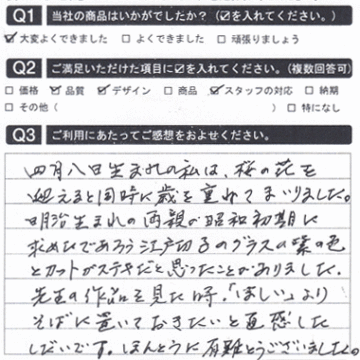 Q1 当社の商品はいかがでしたか？（☑を入れてください。）
☑大変よくできました □よくできました □頑張りましょう
Q2 ご満足いただけた項目に☑を入れてください。（複数回答可）
□価格 ☑品質 ☑デザイン □商品 ☑スタッフの対応 □納期
□その他（ ） □特になし
Q3 ご利用にあたってご感想をおよせください。
四月八日生まれの私は、桜の花を
迎えると同時に歳を重ねてまいりました。
明治生まれの両親が昭和初期に
求めたであろう江戸切子のグラスの紫の色
とカットがステキだと思ったことがありました。
先生の作品を見た時、「ほしい」より
そばに置いておきたいと直感した
しだいです。ほんとうに有難とうございました。